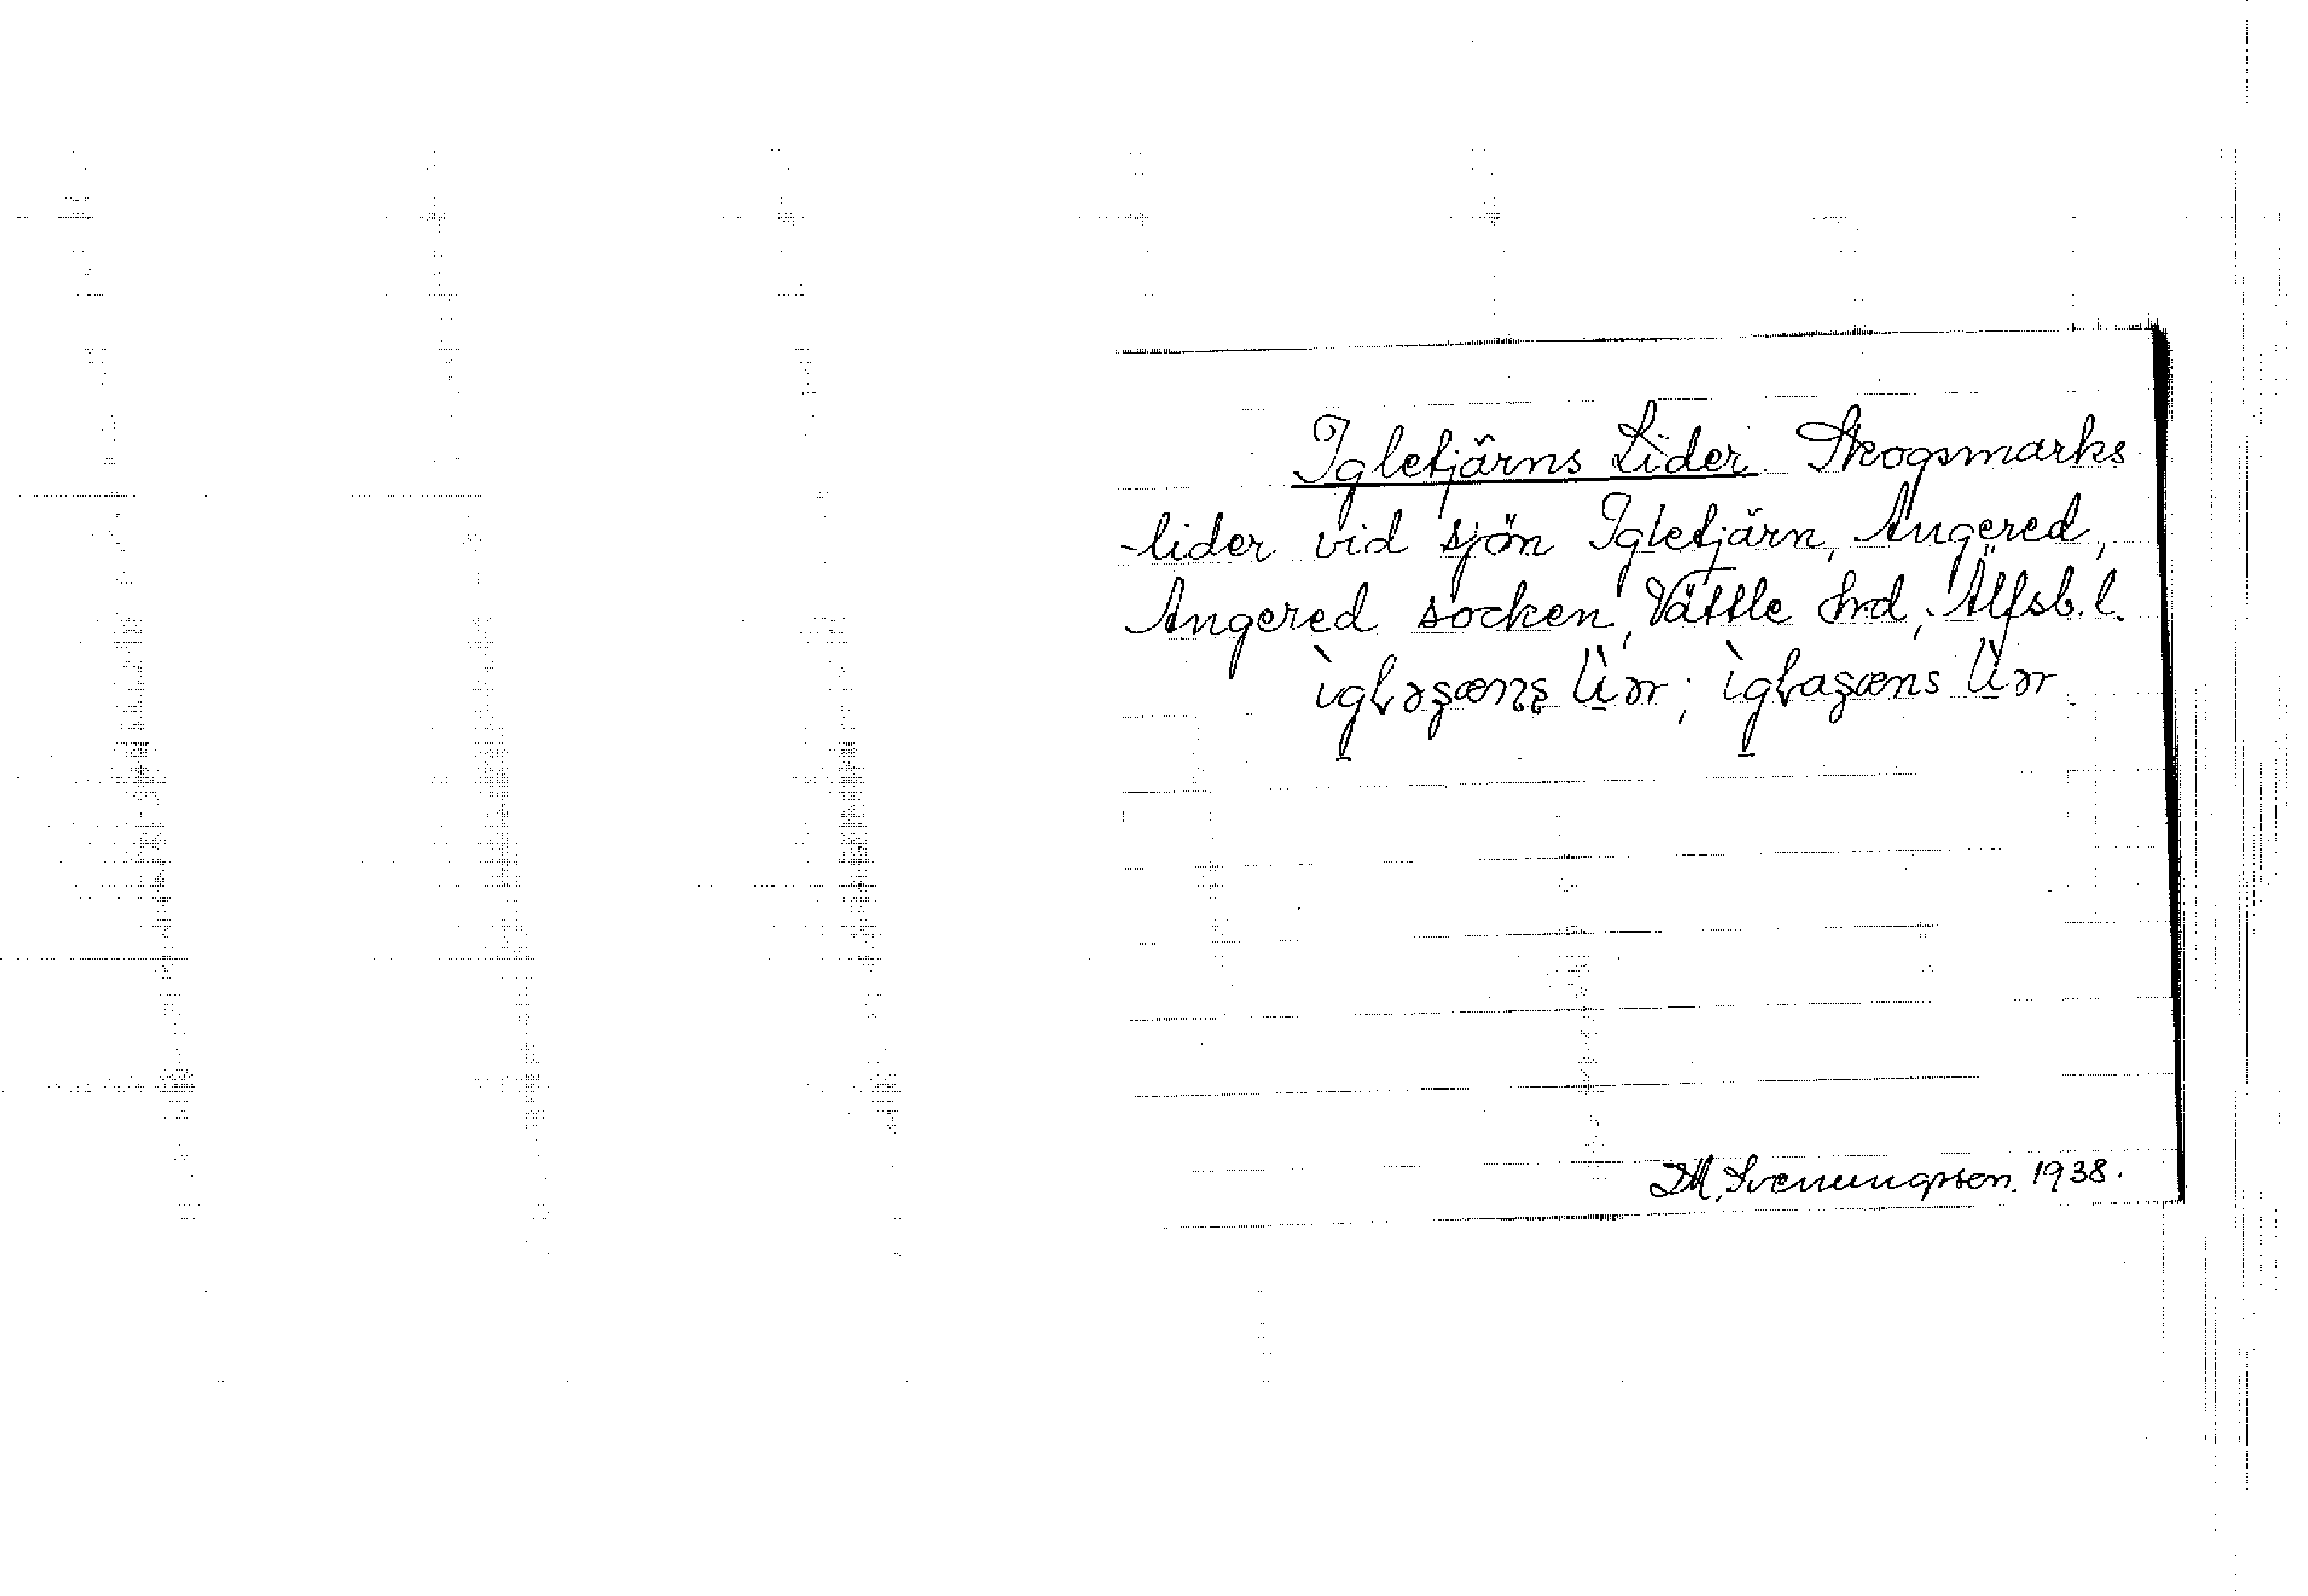 Igletjärns Lider. Skogsmarks-
-lider vid sjön Igletjärn, Angered,
Angered socken, Vättle hrd, Älfsb. l.
D.M. Svenungsson. 1938.